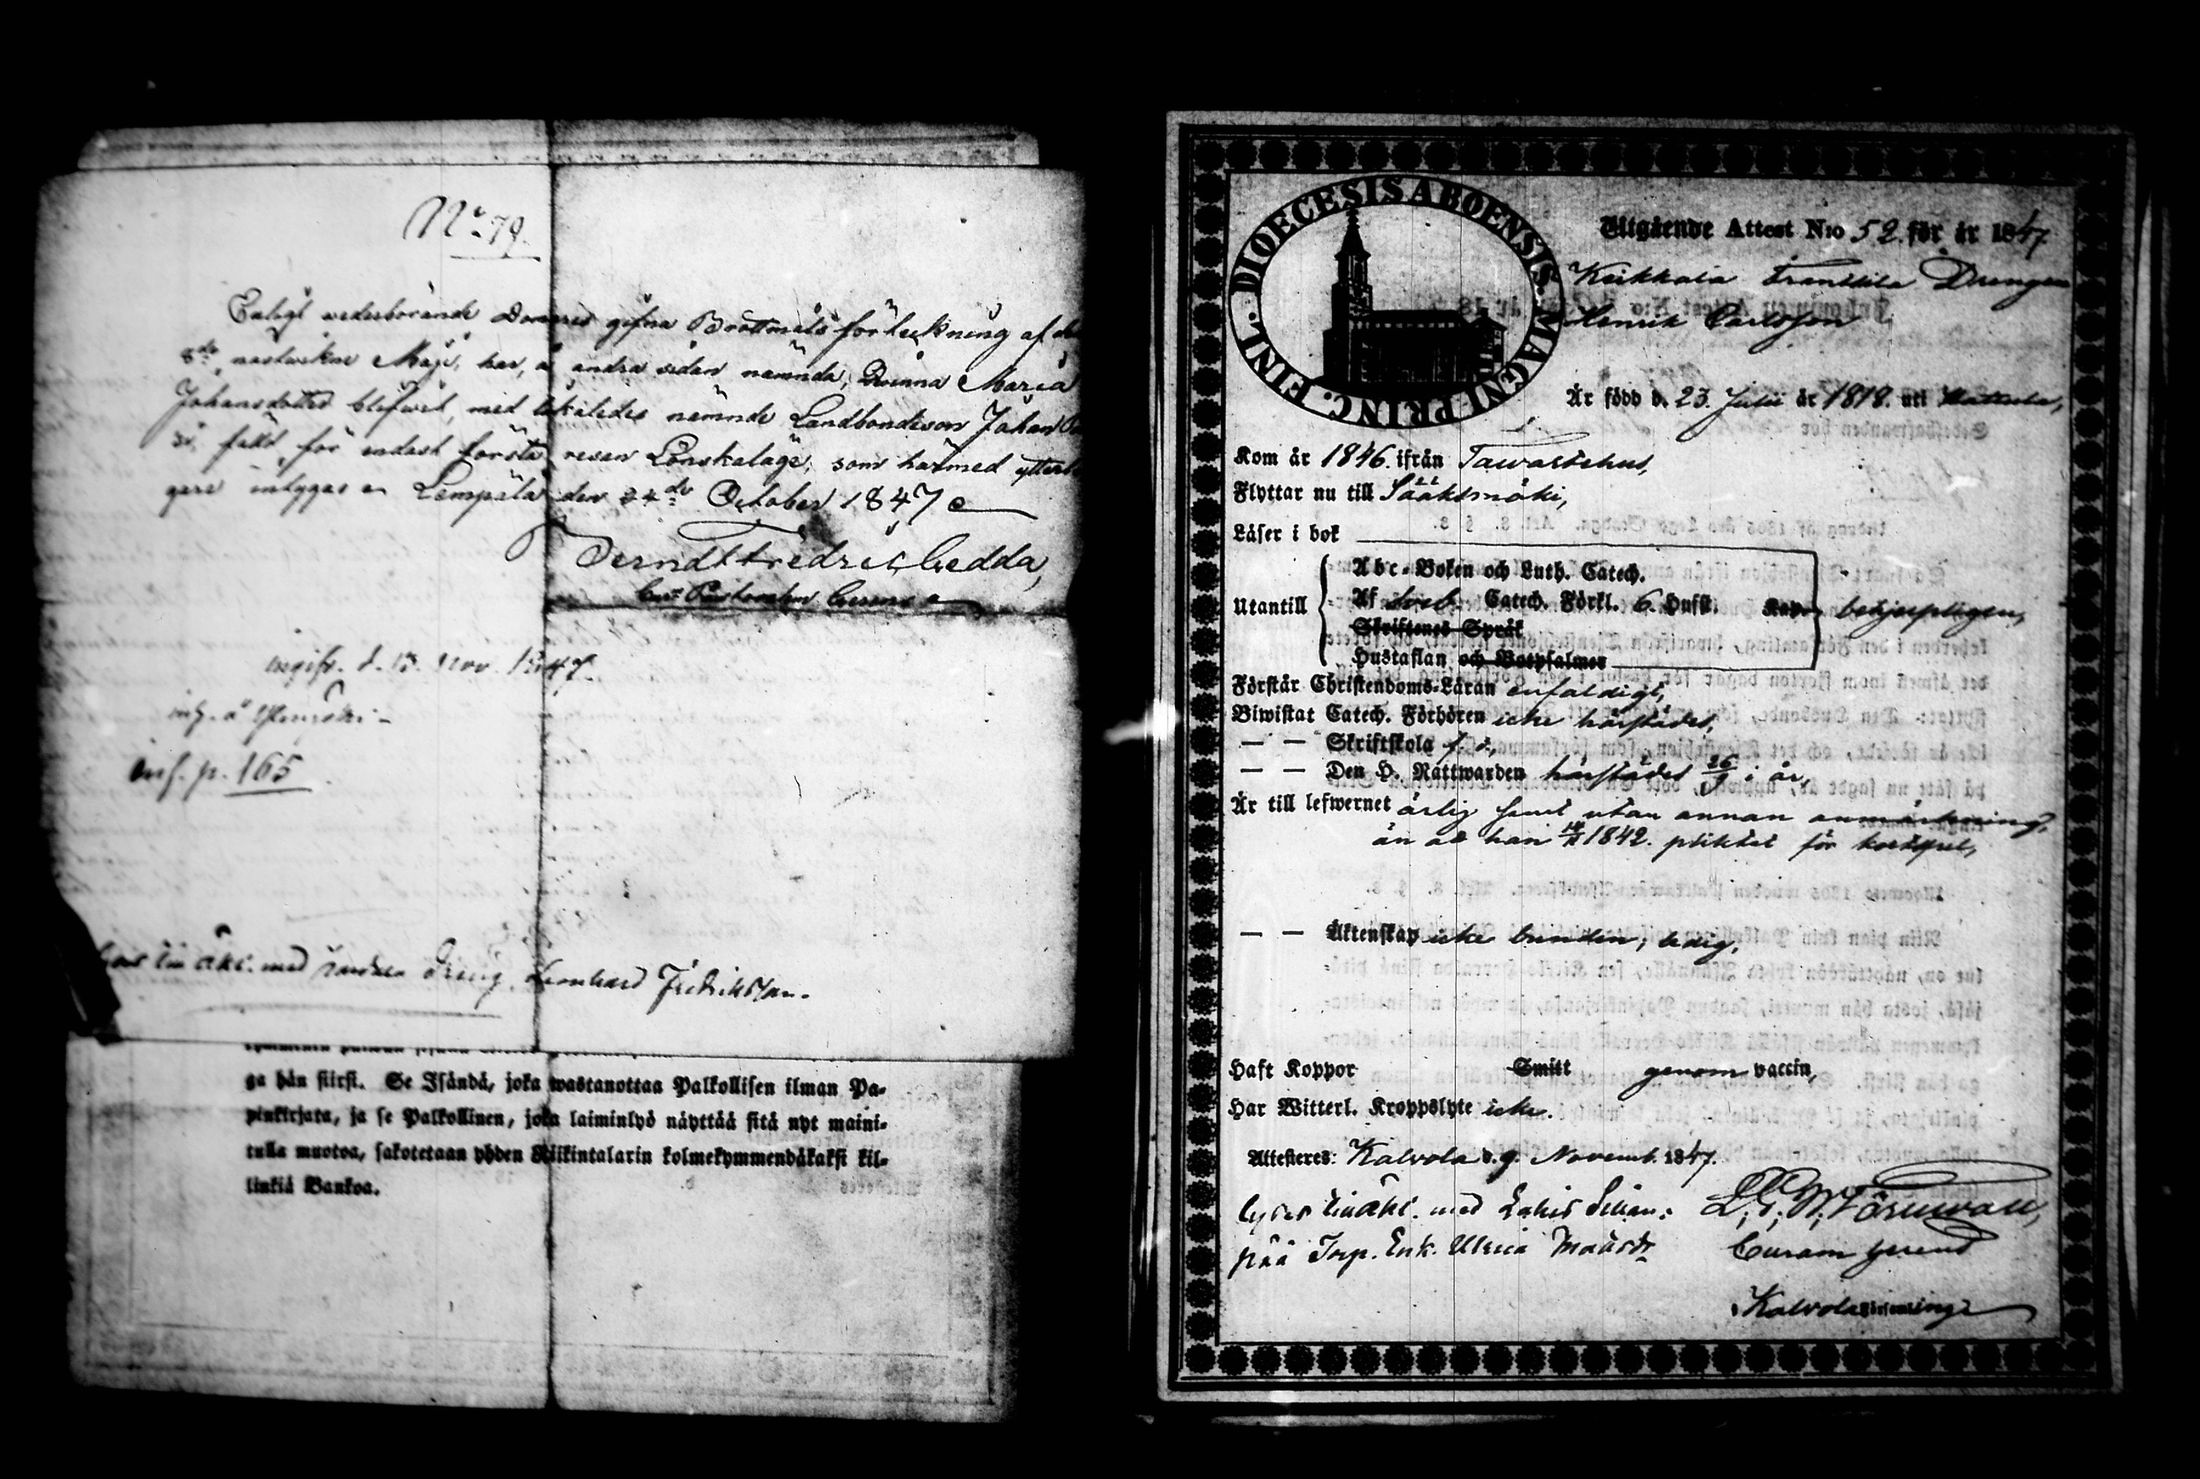 No 79.
Enligt wederbörande Domares gifna Brottmåls förteckning af den
8de nästwikne Maji, har, å andra sidan nämnda, Qvinna Maria
Johansdotter blifwit, med likaledes nämnde Landbondeson Johan
fäld för endast första resan Lönskaläge, som härmed ytterli
gare intygas Lempäla den 24de October 1847
Berndt Fredric Gedda,
ingifv. d. 13. Nov. 1847.
inf. p. 165
med Dreng Leonhard Fredriksson.
ga hän siirsi. Se Isändä, joka wastanottaa Palkollisen ilman Pa-
pinkirjata, ja se Palkollinen, joka laiminlyö näyttää sitä nyt maini-
tulla muotoa, sakotetaan yhden Riikintalarin kolmekymmendäkaksi kil-
linkiä Bankoa.
DIOECESIS ABOENSIS MAGNI PRINC. FINL.
Utgående Attest N:o 52 för år 1847
Keikkala Franttila Drengen
Henrik Carlsson
Är född d. 23. Julii år 1818. uti Hattula,
Kom år 1846. ifrån Tawastehus,
Flyttar nu till Sääksmäki,
Läser i bok
Utantill
Abc-Boken och Luth. Catech.
Af Sveb. Catech. Förkl. 6. Hufst. behjerpligen,
Skriftenes Språk
Hustaflan och Botpsalmer
Förstår Christendoms-Läran enfaldigt,
Biwistat Catech. Förhören icke härstädes,
— — Skriftskola f. d.,
— — Den H. Nattwarden härstädes 26/9 i år,
Är till lefwernet ärlig samt utan annan anmärkning,
än at han 1842. pliktat för kortspel,
— — Äktenskap icke bunden, ledig,
Haft Koppor Smitt genom vaccin,
Har Witterl. Kroppslyte icke.
Attesteres: Kalvola d. 9. Novemb. 1847.
med
Torp. Enk. Ulrica Matsdr
Curam gerens
i Kalvola Församling